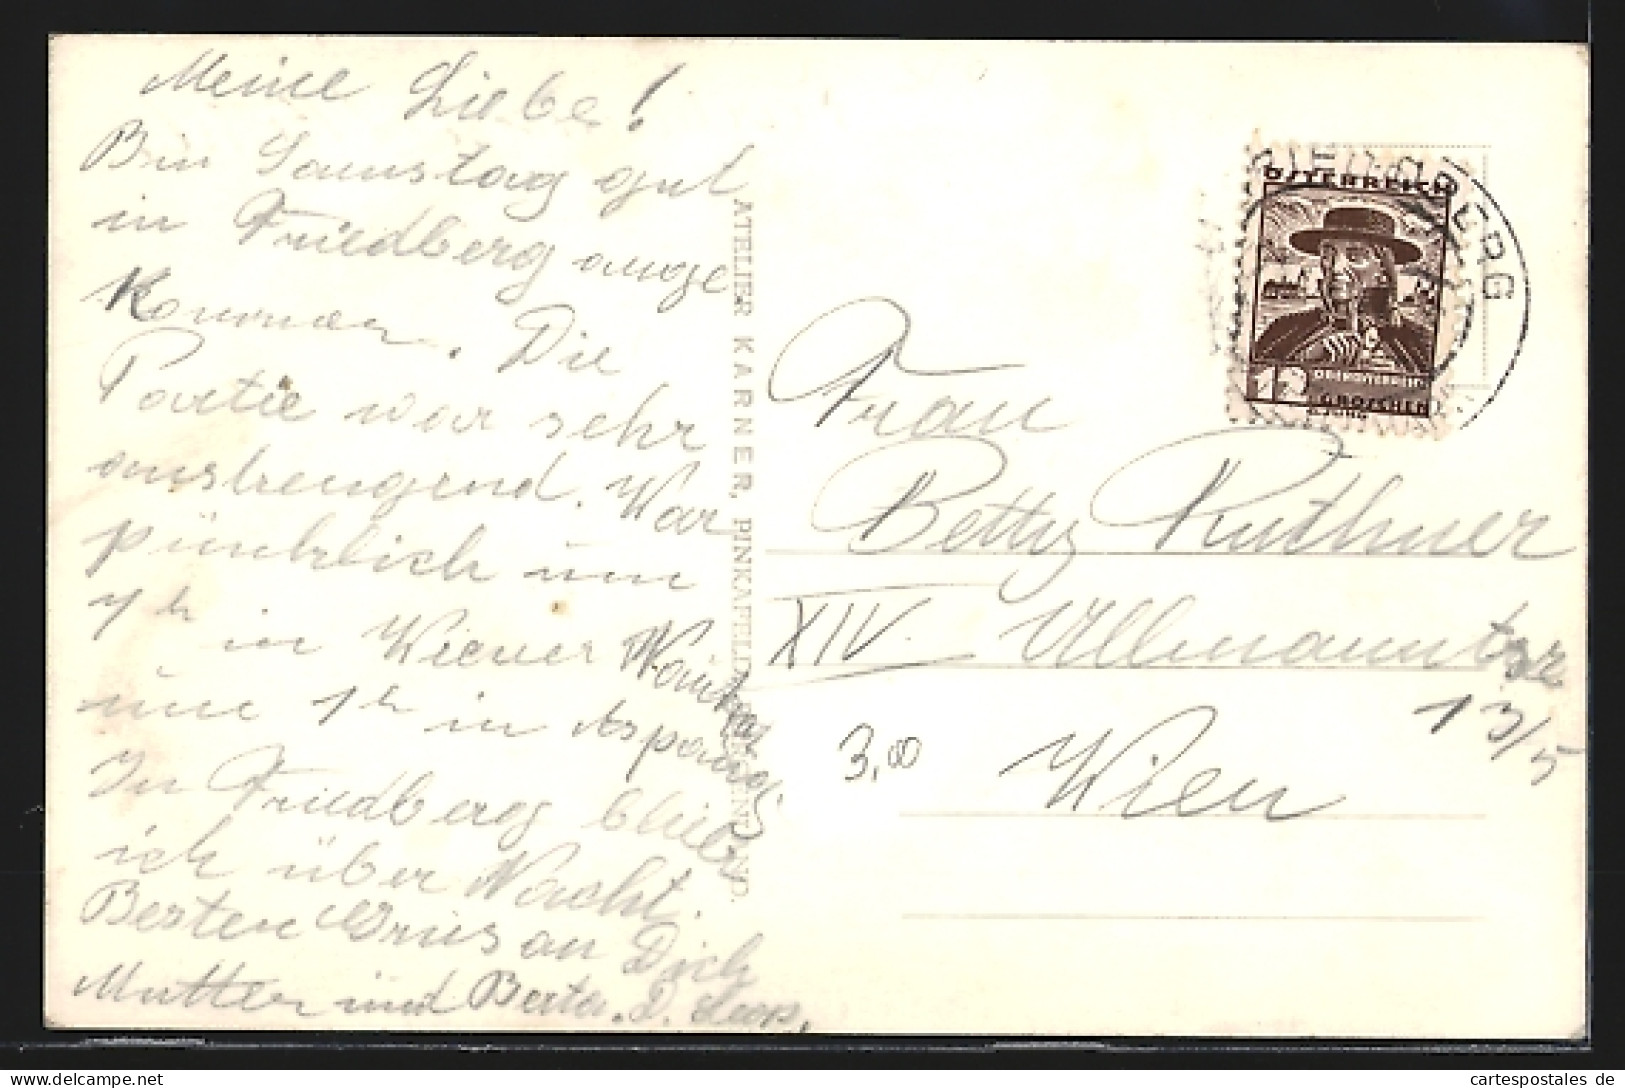 Meine Liebe!
Bin Samstag gut
in Friedberg ange
Kommen. Die
Partie war sehr
anstrengend. War
pünktlich um
7h in Wiener
um 1h in Aspang.
In Friedberg blieb
ich über Nacht.
Besten Grus an Dich
Mutter und Berta. D.
ATELIER KARNER, PINKAFELD
FRIEDBERG
ÖSTERREICH
12
OBERÖSTERREICH
GROSCHEN
Frau
Betty Ruthner
XIV. Ullmannstr
13/5
Wien
3,00
cartespostales de